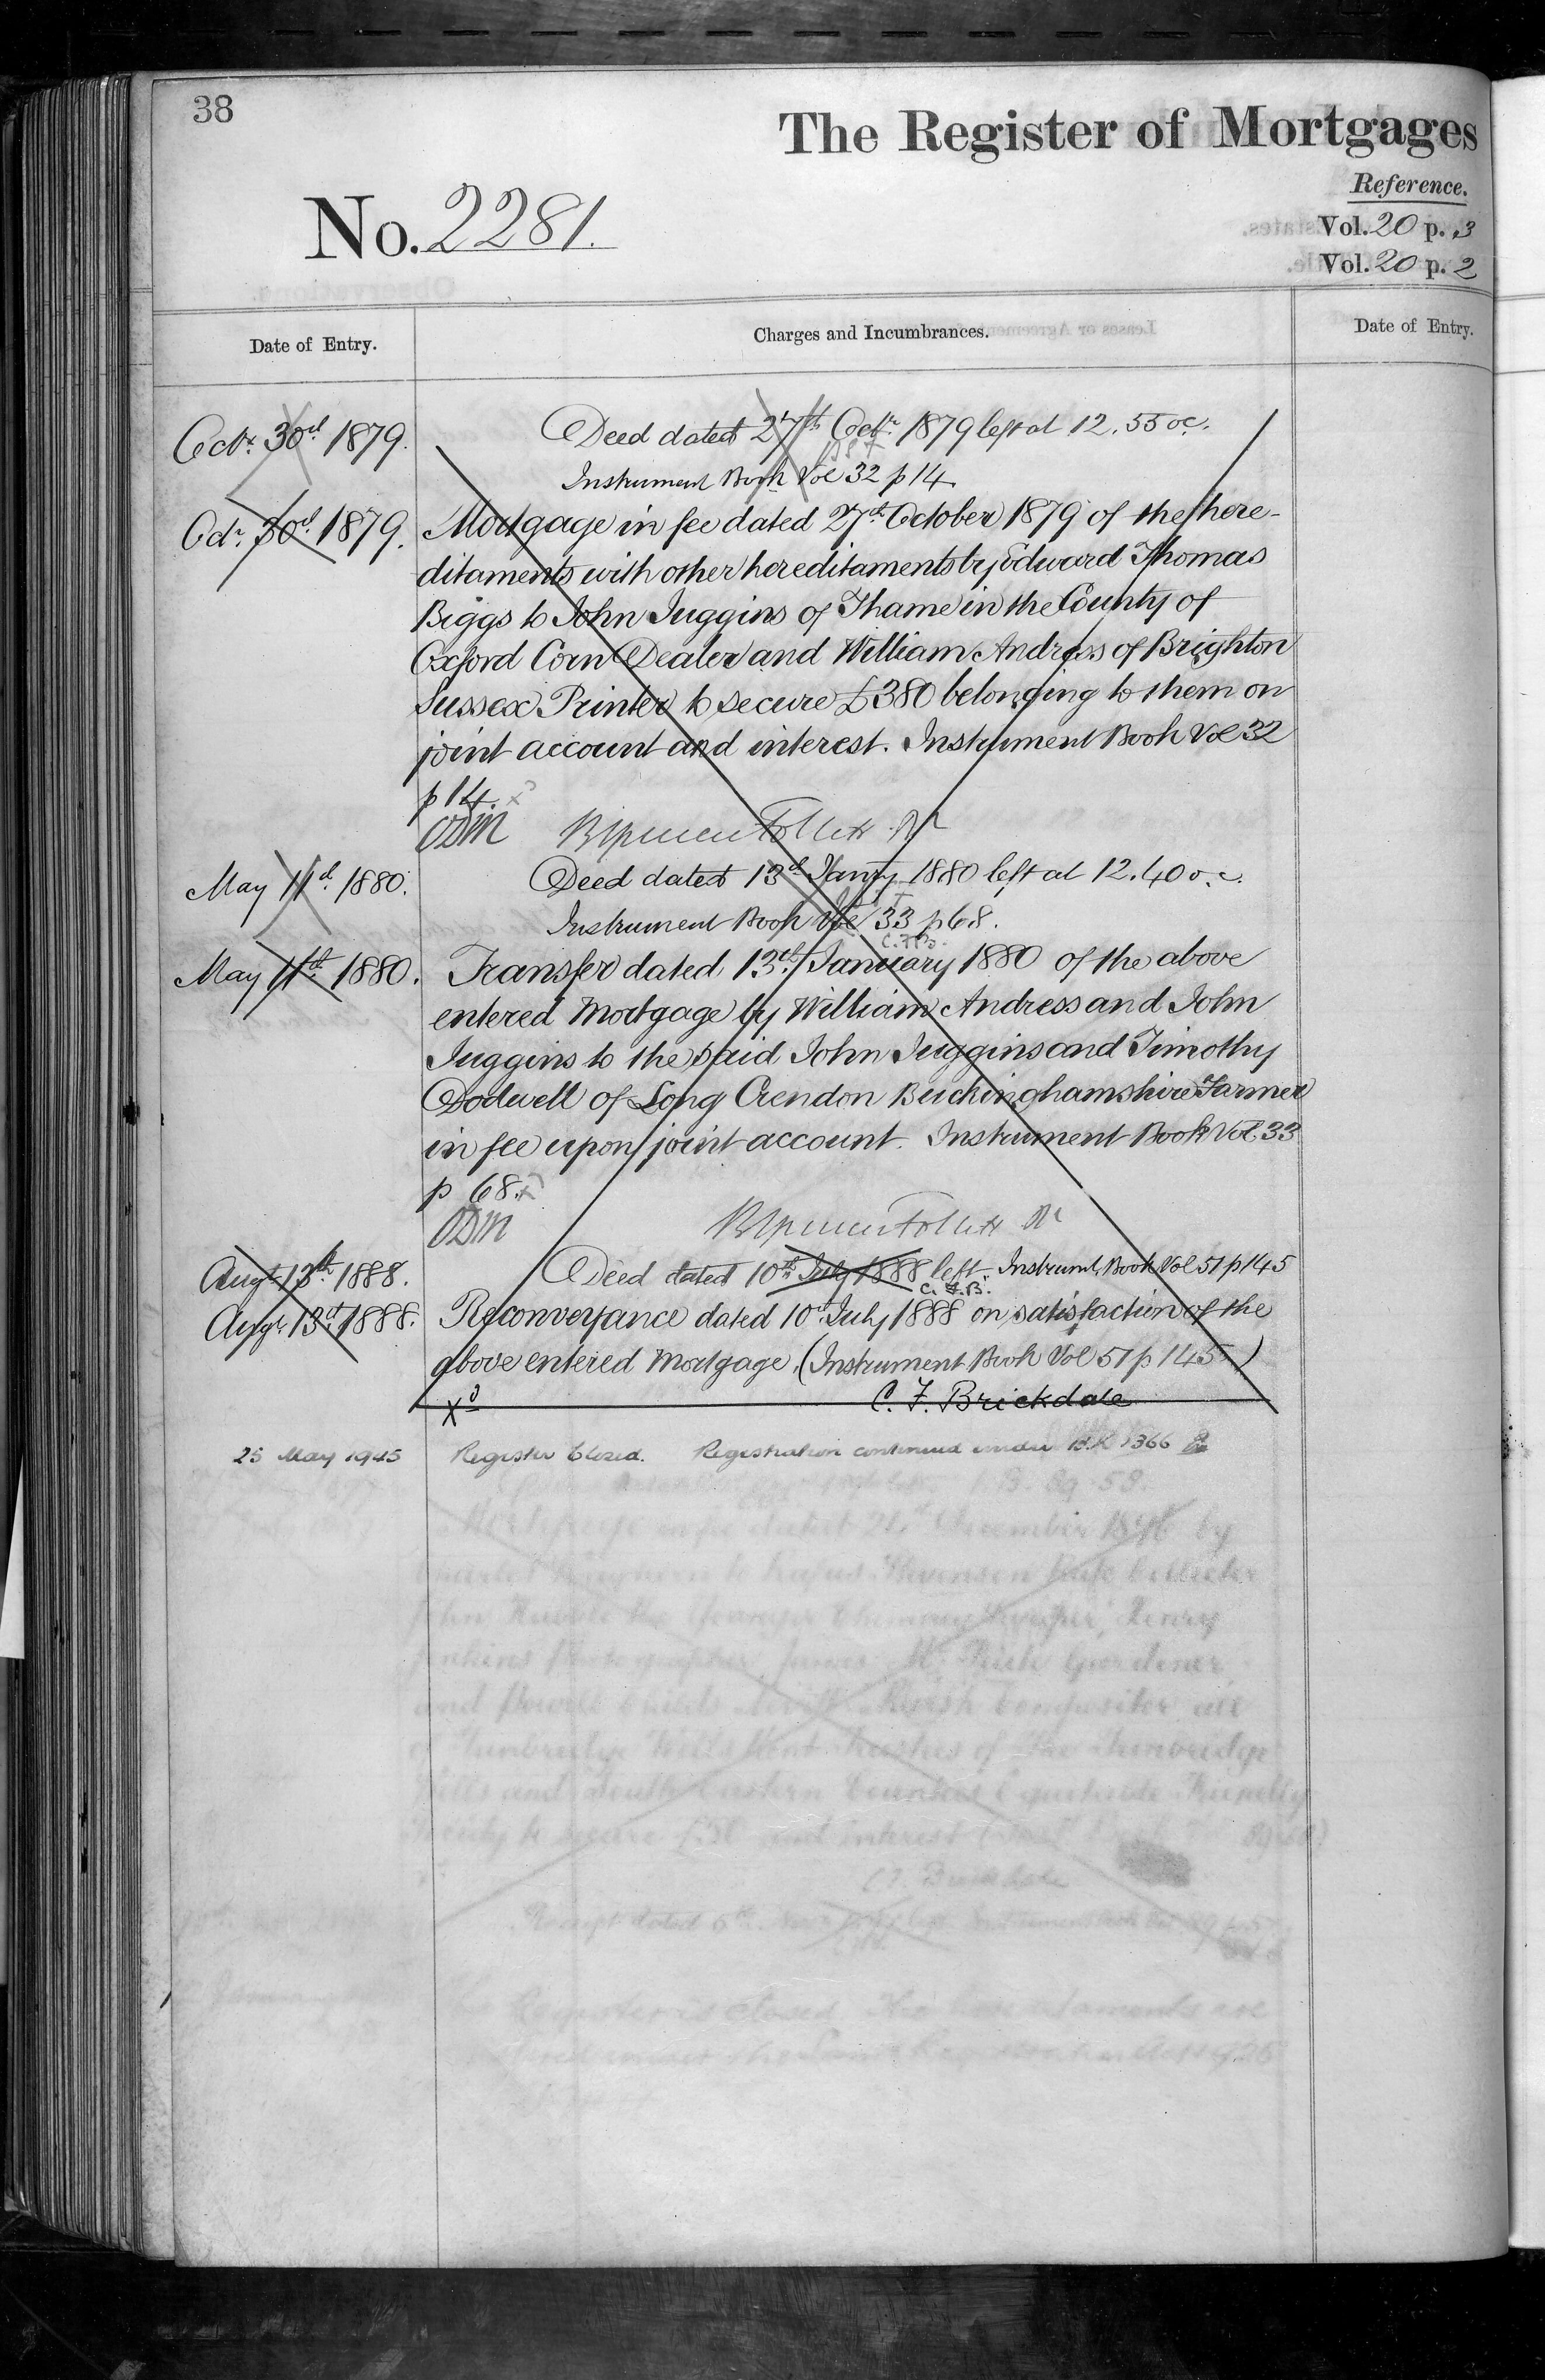 38
The Register of Mortgages
Reference.
No. 2281.
Vol. 20 p. 3
Vol. 20 p. 2
Date of Entry.
Charges and Incumbrances.
Date of Entry.
Octr. 30d 1879.
Deed dated 27th Octr. 1879 left at 12.55 oc.
Instrument Book Vol 32 p 14
Octr. 30d. 1879.
Mortgage in fee dated 27th October 1879 of the here-
ditaments with other hereditaments by Edward Thomas
Biggs to John Juggins of Thame in the County of
Oxford Corn Dealer and William Andress of Brighton
Sussex Printer to secure £380 belonging to them on
joint account and interest. Instrument Book Vol 32
p 14.
ODM
May 11d. 1880.
Deed dated 13d Jany 1880 left at 12.40 o.c.
Instrument Book Vol 33 p 68.
C.F.B.
May 11th 1880.
Transfer dated 13th January 1880 of the above
entered Mortgage by William Andress and John
Juggins to the said John Juggins and Timothy
Dodwell of Long Crendon Buckinghamshire Farmer
in fee upon joint account. Instrument Book Vol 33
p 68.
ODM
Augt 13th 1888.
Deed dated 10th July 1888 left. Instrumt Book Vol 51 p 145
C.F.B.
Augt 13d 1888.
Reconveyance dated 10d July 1888 on satisfaction of the
above entered Mortgage. (Instrument Book Vol 51 p 145)
Xd
C. F. Brickdale
25 May 1945
Register Closed. Registration continued under 1366